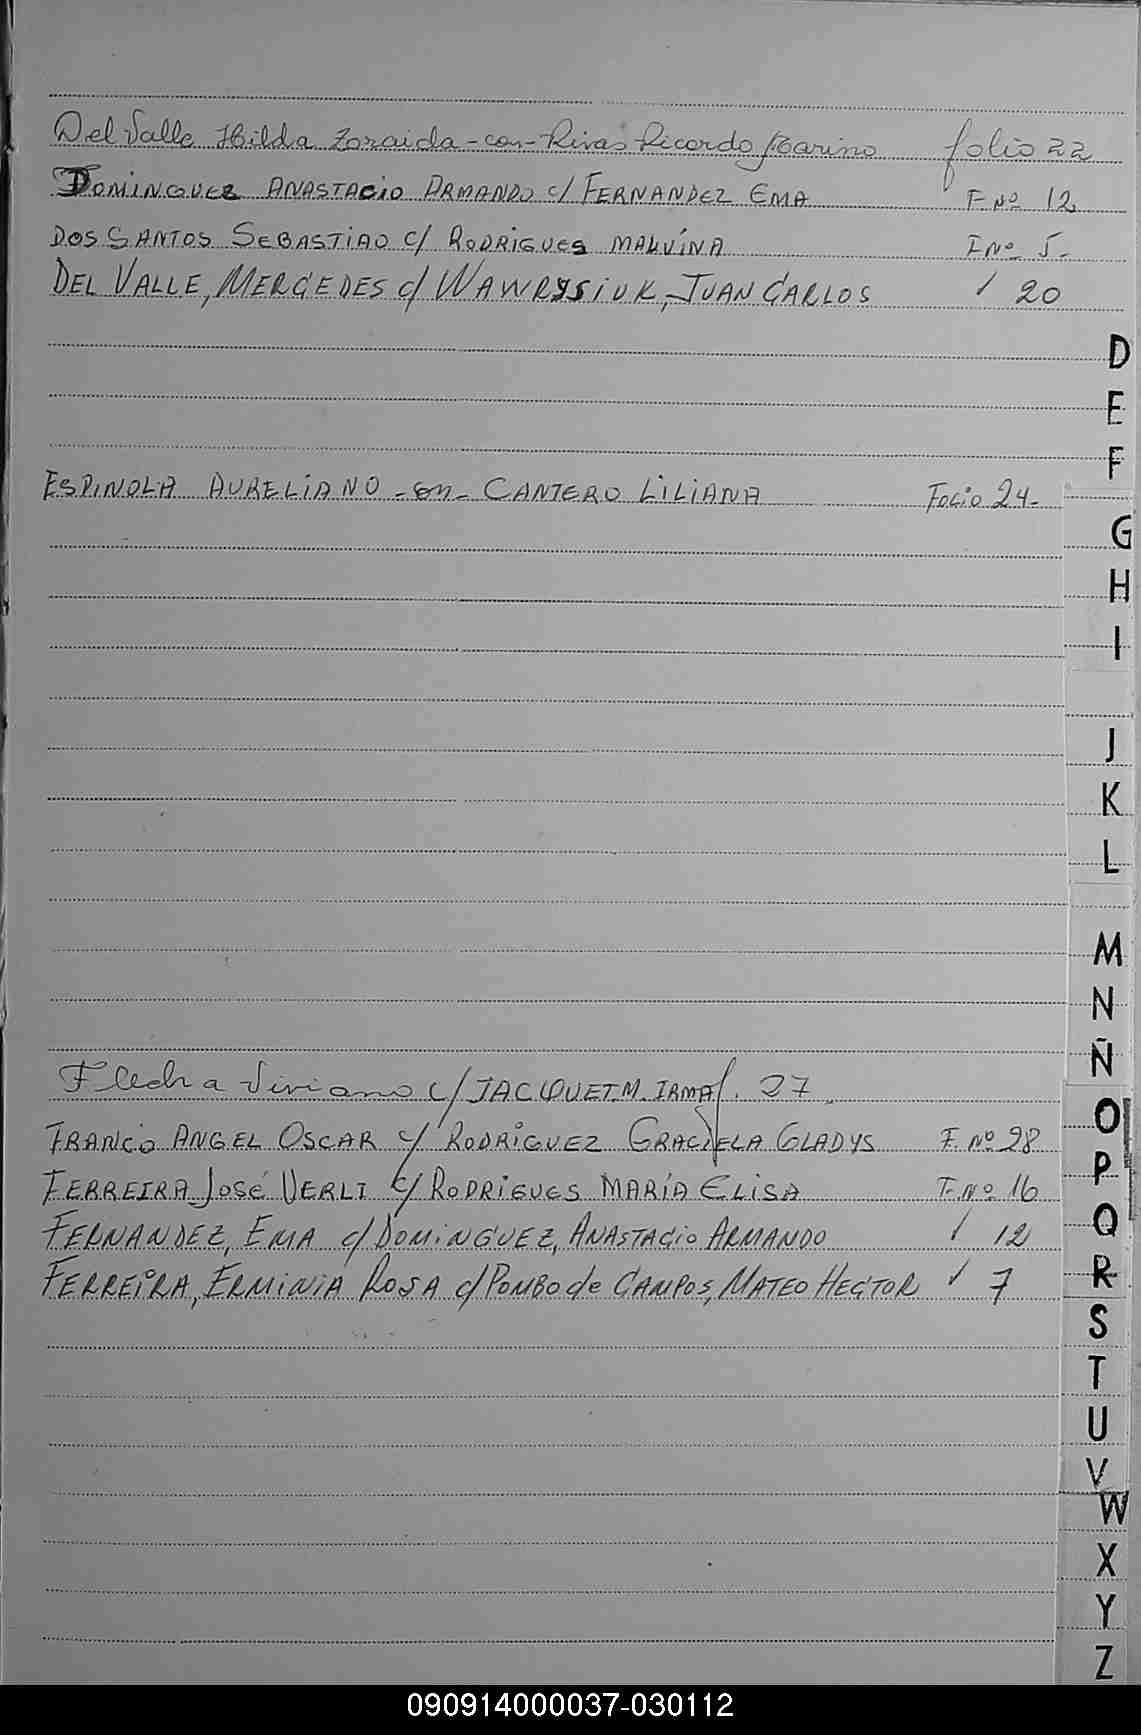 Del Valle Hilda Zoraida - con - Rivas Ricardo Marino folio 22
DOMINGUEZ ANASTACIO ARMANDO c/ FERNANDEZ EMA F Nº 12
DOS SANTOS SEBASTIAO c/ RODRIGUES MALVÍNA F Nº 5-
DEL VALLE, MERCEDES c/ WAWRYSIUK, JUAN CARLOS / 20
D
E
F
ESPINOLA AURELIANO - con - CANTERO LILIANA FOLIO 24-
G
H
I
J
K
L
M
N
Ñ
Flecha Viviano c/ JACQUET M. IRMA f. 27
O
FRANCO ANGEL OSCAR c/ RODRÍGUEZ GRACIELA GLADYS F. Nº 28
P
FERREIRA JOSÉ VERLI c/ RODRIGUES MARÍA ELISA F. Nº 16
Q
FERNANDEZ, EMA c/ DOMINGUEZ, ANASTACIO ARMANDO / 12
R
FERREIRA, ERMINIA ROSA c/ POMBO de CAMPOS, MATEO HECTOR / 7
S
T
U
V
W
X
Y
Z
090914000037-030112